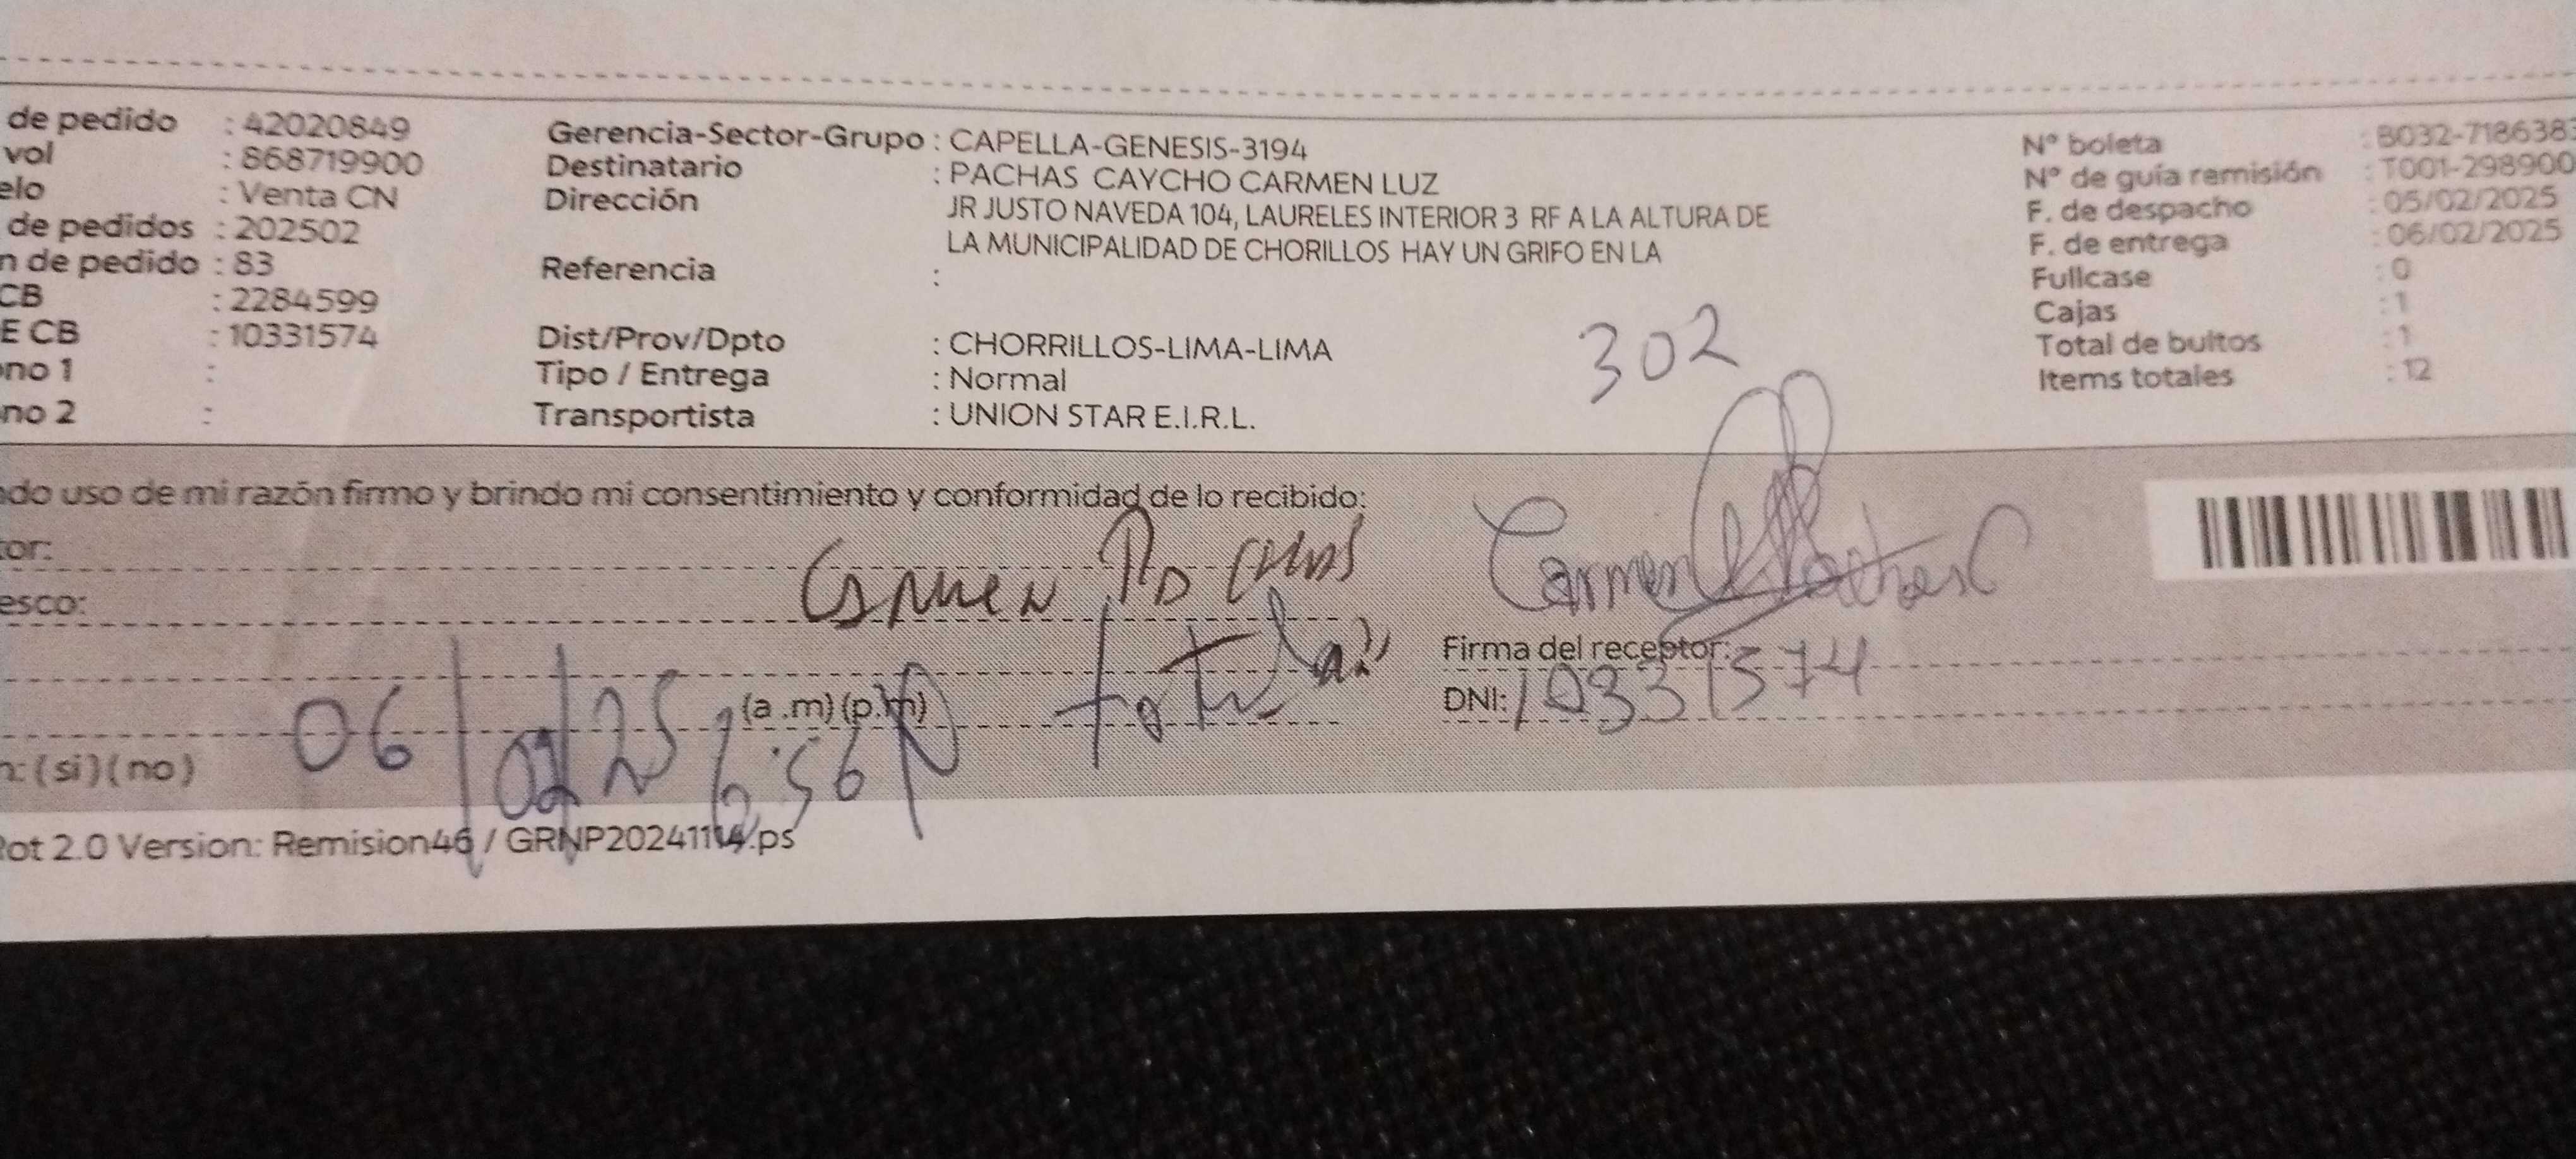 de pedido : 42020849
vol : 868719900
elo : Venta CN
de pedidos : 202502
n de pedido : 83
CB : 2284599
E CB : 10331574
no 1 :
no 2 :
Gerencia-Sector-Grupo : CAPELLA-GENESIS-3194
Destinatario : PACHAS CAYCHO CARMEN LUZ
Dirección JR JUSTO NAVEDA 104, LAURELES INTERIOR 3 RF A LA ALTURA DE
LA MUNICIPALIDAD DE CHORILLOS HAY UN GRIFO EN LA
Referencia :
Dist/Prov/Dpto : CHORRILLOS-LIMA-LIMA
Tipo / Entrega : Normal
Transportista : UNION STAR E.I.R.L.
302
N° boleta : B032-718638
N° de guía remisión : T001-298900
F. de despacho : 05/02/2025
F. de entrega : 06/02/2025
Fullcase : 0
Cajas : 1
Total de bultos : 1
Items totales : 12
do uso de mi razón firmo y brindo mi consentimiento y conformidad de lo recibido:
tor:
esco:
Carmen
Carmen Pachas C
Firma del receptor:
DNI: 10331574
(a .m) (p.m)
06/02/25 6:56 P
n: ( si ) ( no )
Rot 2.0 Version: Remision46 / GRNP20241114.ps